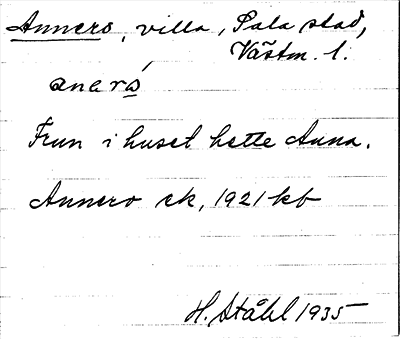 Annero, villa, Sala stad,
Västm. l.
aneró
Frun i huset hette Anna.
Annero ek, 1921 kb
H. Ståhl 1935